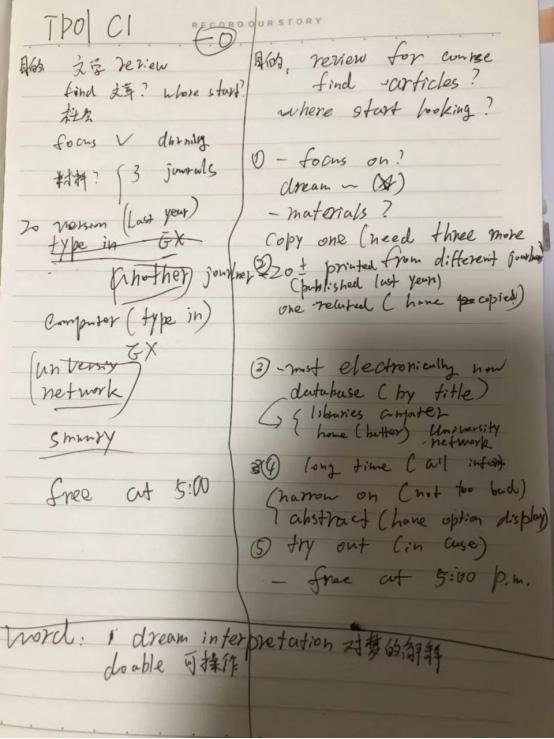 RECORD OUR STORY
TPO1 C1
目的 文学 review
find 文章? where start?
社会
focus ✓ durning
材料? { 3 journals
20 version (last year)
type in EX
(another) journer
computer (type in)
EX
university
network
smmry
free at 5:00
目的, review for course
find articles?
where start looking?
① - focus on?
dream ~
- materials?
copy one (need three more
② 20 ± printed from different
(published last years)
one returned (have copied)
③ - most electronically now
database (by title)
{ libraries computer
home (better) University network
④ long time (all
narrow on (not too bad)
abstract (have option display)
⑤ try out (in case)
- free at 5:00 p.m.
word: 1 dream interpretation 对梦的解释
doable 可操作